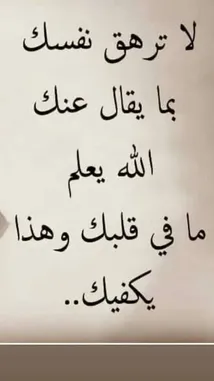 لا ترهق نفسك
بما يقال عنك
الله يعلم
ما في قلبك وهذا
يكفيك..